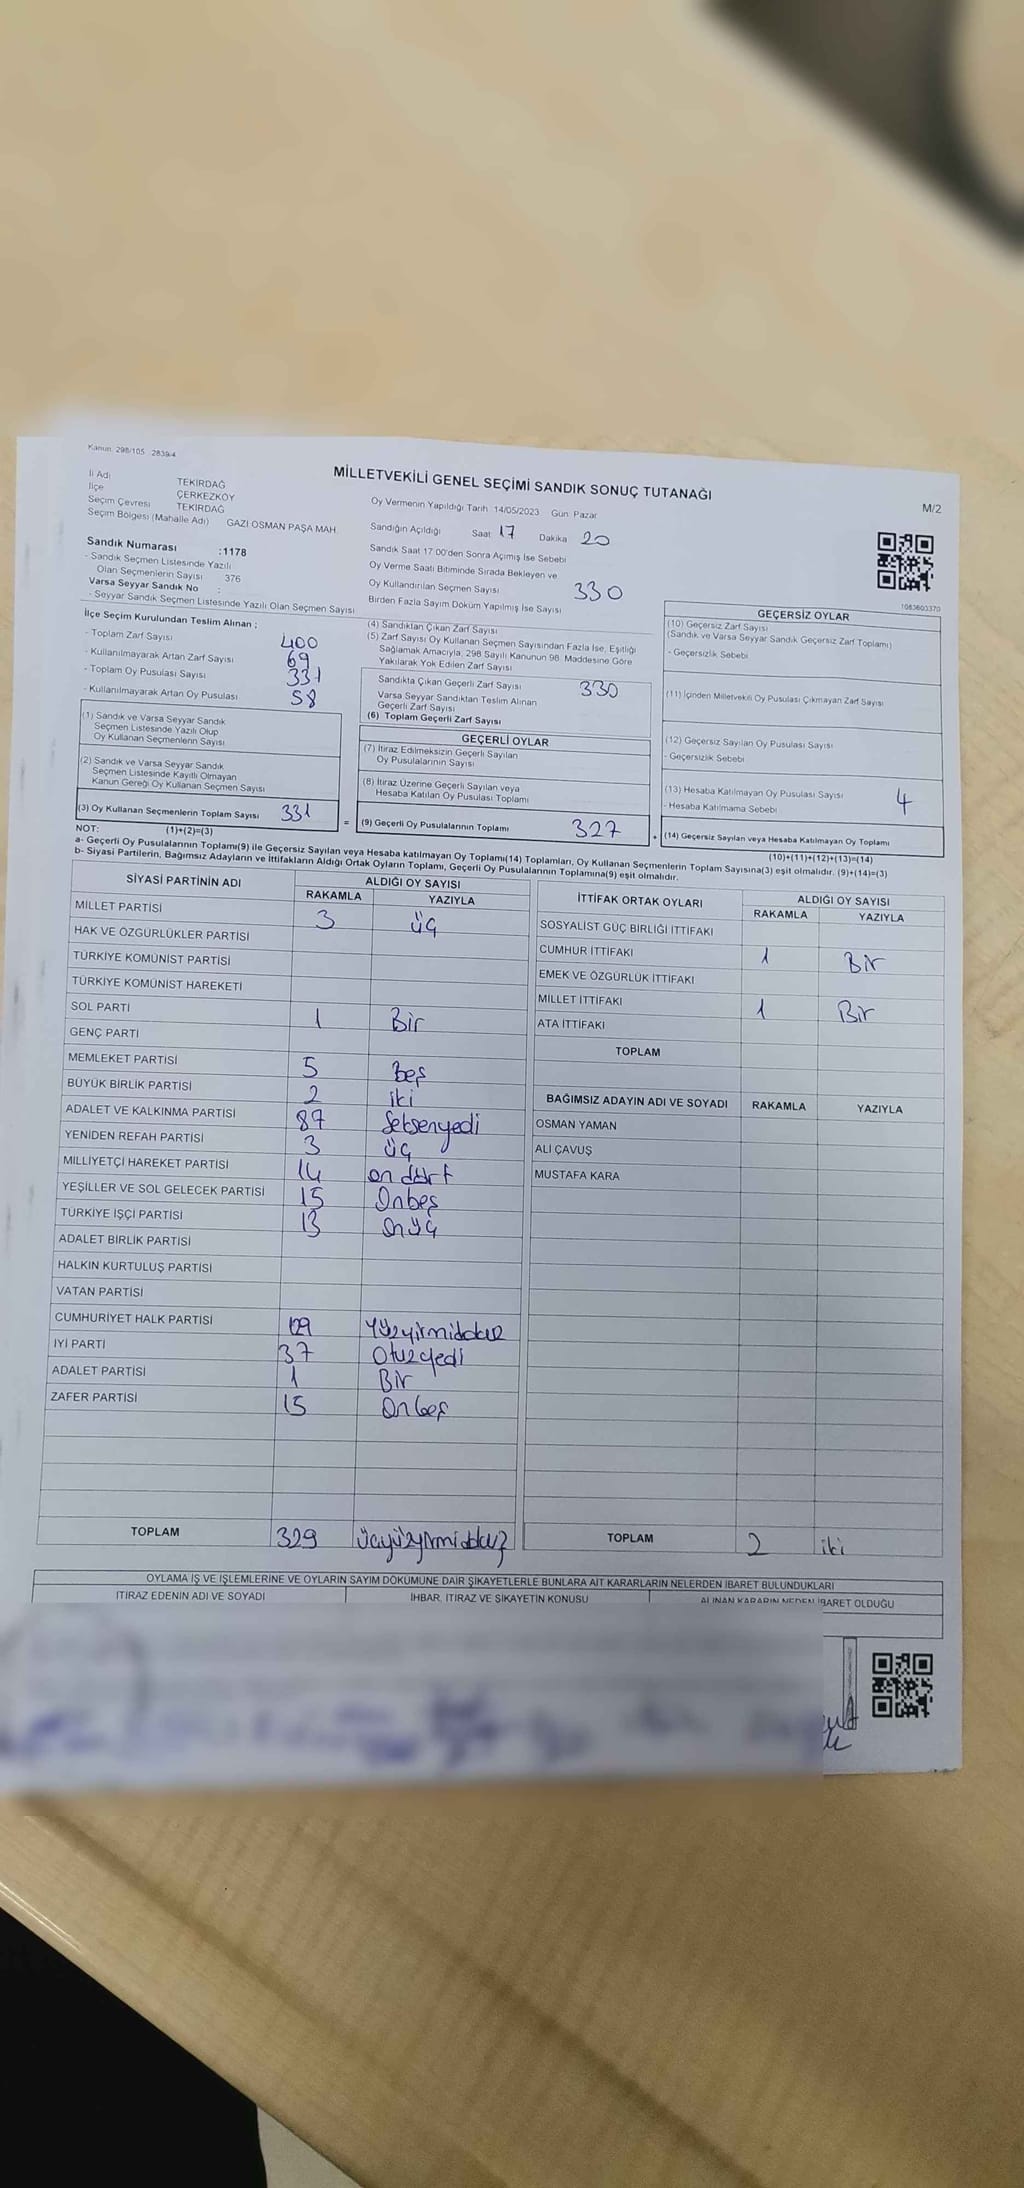 Kanun 298/105 2839/4
MİLLETVEKİLİ GENEL SEÇİMİ SANDIK SONUÇ TUTANAĞI
M/2
İl Adı TEKİRDAĞ
İlçe ÇERKEZKÖY
Seçim Çevresi TEKİRDAĞ
Seçim Bölgesi (Mahalle Adı) GAZİ OSMAN PAŞA MAH.
Oy Vermenin Yapıldığı Tarih 14/05/2023 Gün: Pazar
Sandığın Açıldığı Saat 17 Dakika 20
Sandık Saat 17:00'den Sonra Açımış İse Sebebi
Oy Verme Saati Bitiminde Sırada Bekleyen ve
Oy Kullandırılan Seçmen Sayısı 330
Birden Fazla Sayım Döküm Yapılmış İse Sayısı
Sandık Numarası :1178
- Sandık Seçmen Listesinde Yazılı
Olan Seçmenlerin Sayısı 376
Varsa Seyyar Sandık No :
- Seyyar Sandık Seçmen Listesinde Yazılı Olan Seçmen Sayısı
1083603370
İlçe Seçim Kurulundan Teslim Alınan ;
- Toplam Zarf Sayısı 400
- Kullanılmayarak Artan Zarf Sayısı 69
- Toplam Oy Pusulası Sayısı 331
- Kullanılmayarak Artan Oy Pusulası 58
(1) Sandık ve Varsa Seyyar Sandık
Seçmen Listesinde Yazılı Olup
Oy Kullanan Seçmenlerin Sayısı
(2) Sandık ve Varsa Seyyar Sandık
Seçmen Listesinde Kayıtlı Olmayan
Kanun Gereği Oy Kullanan Seçmen Sayısı
(3) Oy Kullanan Seçmenlerin Toplam Sayısı 331
(1)+(2)=(3)
=
(4) Sandıktan Çıkan Zarf Sayısı
(5) Zarf Sayısı Oy Kullanan Seçmen Sayısından Fazla İse, Eşitliği
Sağlamak Amacıyla, 298 Sayılı Kanunun 98. Maddesine Göre
Yakılarak Yok Edilen Zarf Sayısı
Sandıkta Çıkan Geçerli Zarf Sayısı 330
Varsa Seyyar Sandıktan Teslim Alınan
Geçerli Zarf Sayısı
(6) Toplam Geçerli Zarf Sayısı
GEÇERLİ OYLAR
(7) İtiraz Edilmeksizin Geçerli Sayılan
Oy Pusulalarının Sayısı
(8) İtiraz Üzerine Geçerli Sayılan veya
Hesaba Katılan Oy Pusulası Toplamı
(9) Geçerli Oy Pusulalarının Toplamı 327
+
GEÇERSİZ OYLAR
(10) Geçersiz Zarf Sayısı
(Sandık ve Varsa Seyyar Sandık Geçersiz Zarf Toplamı)
- Geçersizlik Sebebi
(11) İçinden Milletvekili Oy Pusulası Çıkmayan Zarf Sayısı
(12) Geçersiz Sayılan Oy Pusulası Sayısı
- Geçersizlik Sebebi
(13) Hesaba Katılmayan Oy Pusulası Sayısı 4
- Hesaba Katılmama Sebebi
(14) Geçersiz Sayılan veya Hesaba Katılmayan Oy Toplamı
(10)+(11)+(12)+(13)=(14)
NOT:
a- Geçerli Oy Pusulalarının Toplamı(9) ile Geçersiz Sayılan veya Hesaba katılmayan Oy Toplamı(14) Toplamları, Oy Kullanan Seçmenlerin Toplam Sayısına(3) eşit olmalıdır. (9)+(14)=(3)
b- Siyasi Partilerin, Bağımsız Adayların ve İttifakların Aldığı Ortak Oyların Toplamı, Geçerli Oy Pusulalarının Toplamına(9) eşit olmalıdır.
SİYASİ PARTİNİN ADI ALDIĞI OY SAYISI
RAKAMLA YAZIYLA
MİLLET PARTİSİ 3 üç
HAK VE ÖZGÜRLÜKLER PARTİSİ
TÜRKİYE KOMÜNİST PARTİSİ
TÜRKİYE KOMÜNİST HAREKETİ
SOL PARTİ 1 Bir
GENÇ PARTİ
MEMLEKET PARTİSİ 5 beş
BÜYÜK BİRLİK PARTİSİ 2 iki
ADALET VE KALKINMA PARTİSİ 87 Seksenyedi
YENİDEN REFAH PARTİSİ 3 üç
MİLLİYETÇİ HAREKET PARTİSİ 14 on dört
YEŞİLLER VE SOL GELECEK PARTİSİ 15 Onbeş
TÜRKİYE İŞÇİ PARTİSİ 13 onüç
ADALET BİRLİK PARTİSİ
HALKIN KURTULUŞ PARTİSİ
VATAN PARTİSİ
CUMHURİYET HALK PARTİSİ 129 Yüzyirmidokuz
İYİ PARTİ 37 Otuzyedi
ADALET PARTİSİ 1 Bir
ZAFER PARTİSİ 15 Onbeş
TOPLAM 329 üçyüzyirmidokuz
İTTİFAK ORTAK OYLARI ALDIĞI OY SAYISI
RAKAMLA YAZIYLA
SOSYALİST GÜÇ BİRLİĞİ İTTİFAKI
CUMHUR İTTİFAKI 1 Bir
EMEK VE ÖZGÜRLÜK İTTİFAKI
MİLLET İTTİFAKI 1 Bir
ATA İTTİFAKI
TOPLAM
BAĞIMSIZ ADAYIN ADI VE SOYADI RAKAMLA YAZIYLA
OSMAN YAMAN
ALİ ÇAVUŞ
MUSTAFA KARA
TOPLAM 2 iki
OYLAMA İŞ VE İŞLEMLERİNE VE OYLARIN SAYIM DÖKÜMÜNE DAİR ŞİKAYETLERLE BUNLARA AİT KARARLARIN NELERDEN İBARET BULUNDUKLARI
İTİRAZ EDENİN ADI VE SOYADI İHBAR, İTİRAZ VE ŞİKAYETİN KONUSU ALINAN KARARIN NEDEN İBARET OLDUĞU